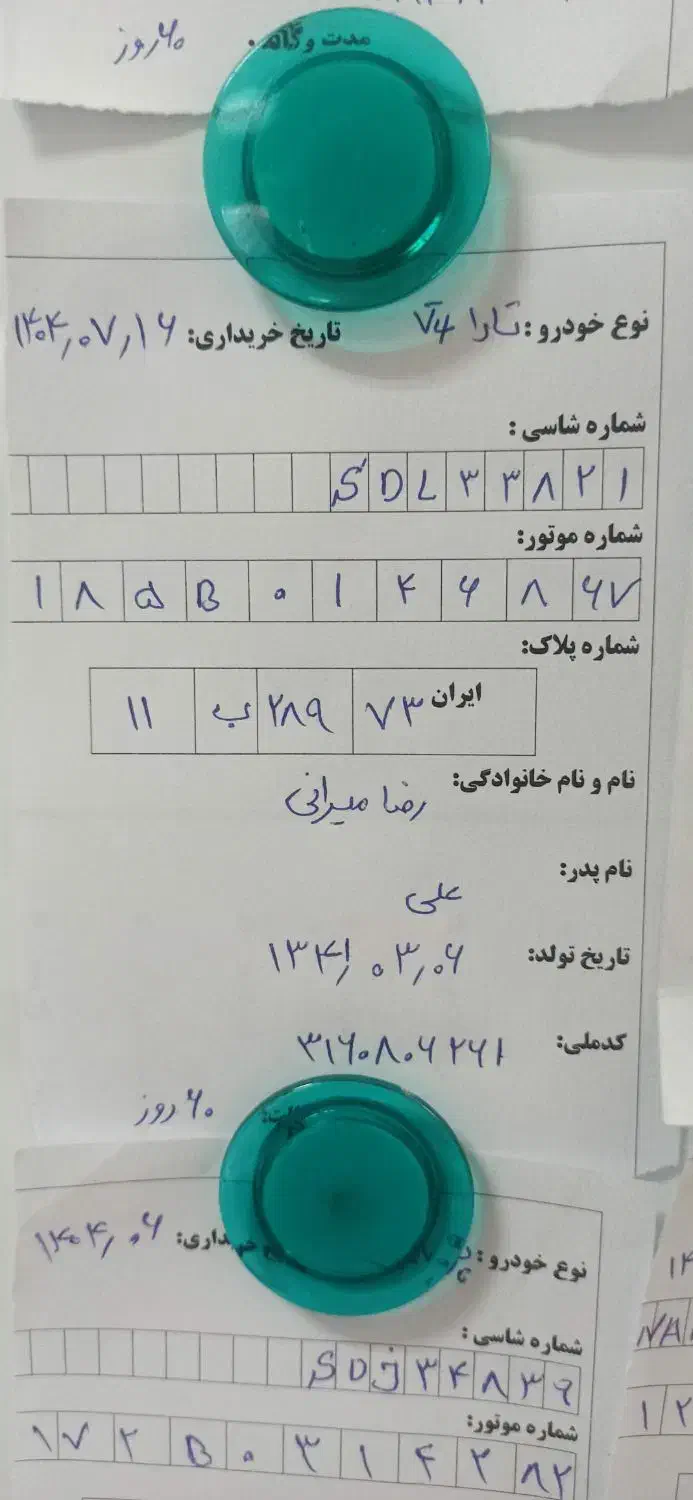 مدت وکالت: ۶۰ روز
نوع خودرو: تارا V4 تاریخ خریداری: ۱۴۰۴,۰۷,۱۶
شماره شاسی:
SDL۳۳۸۲۱
شماره موتور:
۱۸۵B۰۱۴۶۸۶۷
شماره پلاک:
ایران ۷۳ ۲۸۹ ب ۱۱
نام و نام خانوادگی: رضا میرانی
نام پدر: علی
تاریخ تولد: ۱۳۴۱,۰۳,۰۶
کدملی: ۳۱۶۰۸۰۶۲۶۱
۶۰ روز
نوع خودرو: ۱۴۰۴,۰۶
شماره شاسی:
SDJ۳۴۸۳۹
شماره موتور:
۱۷۲B۰۳۱۴۲۸۲